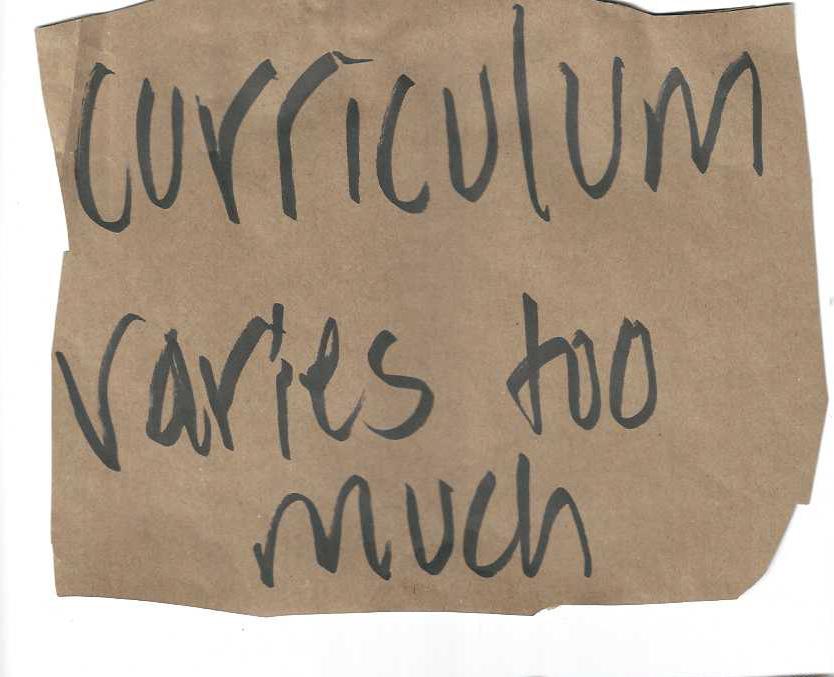 curriculum
varies too
much